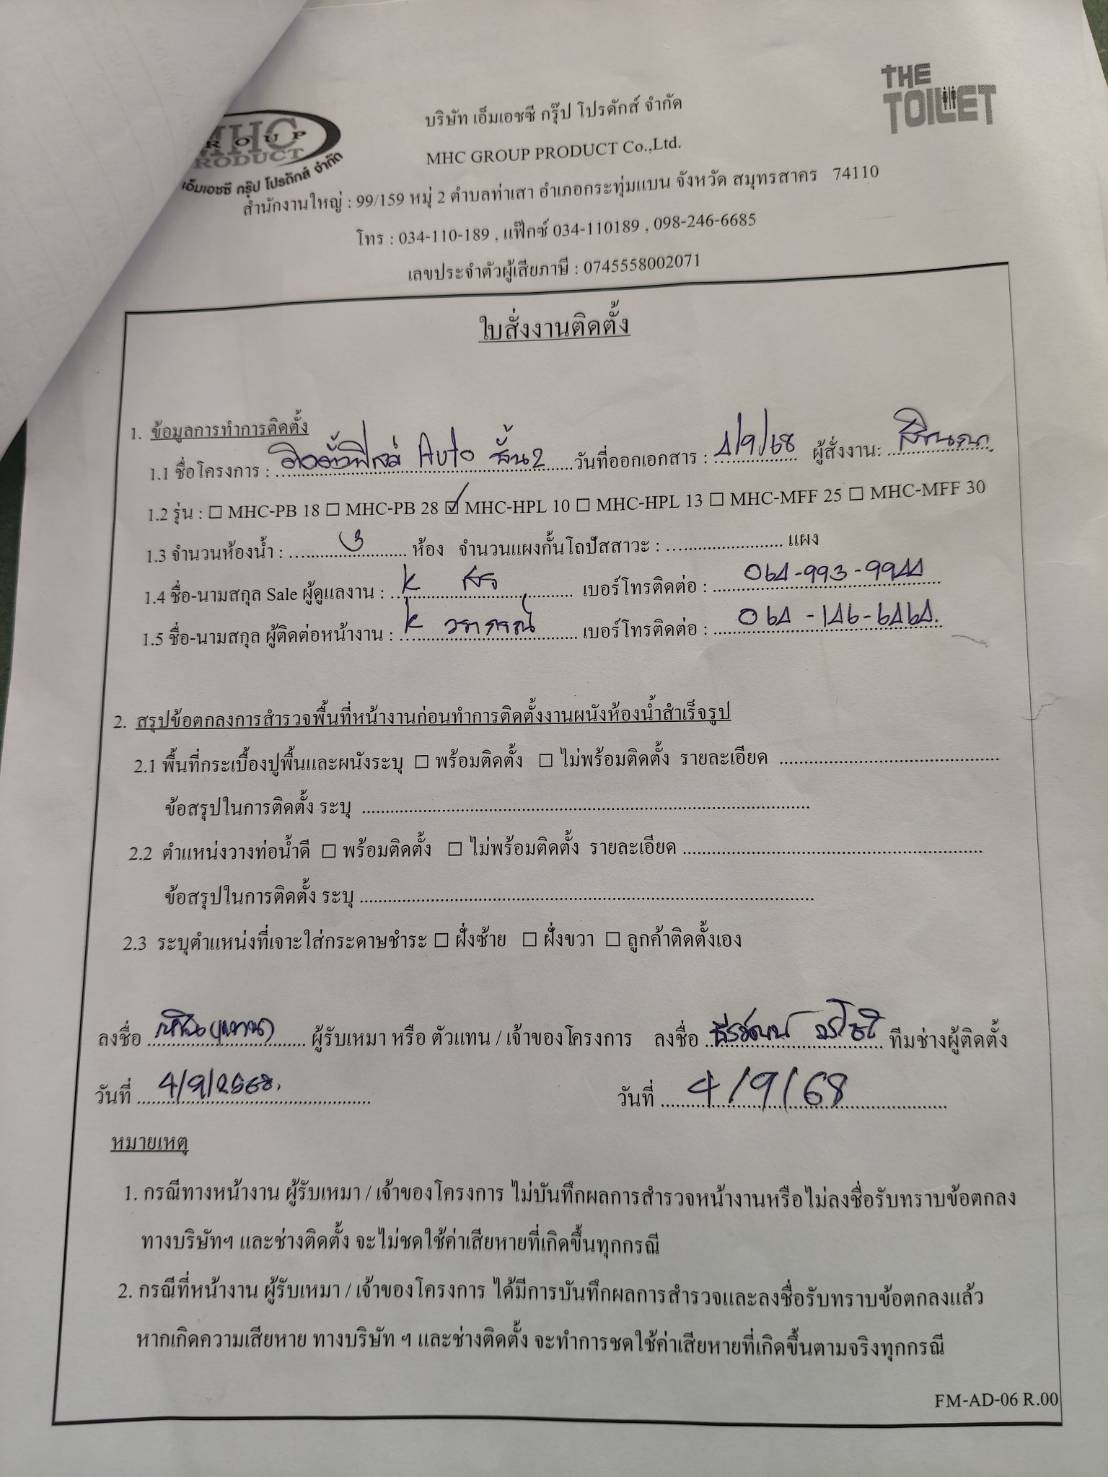 THE
TOILET
MHC
GROUP
PRODUCT
เอ็มเอชซี กรุ๊ป โปรดักส์ จำกัด
บริษัท เอ็มเอชซี กรุ๊ป โปรดักส์ จำกัด
MHC GROUP PRODUCT Co.,Ltd.
สำนักงานใหญ่ : 99/159 หมู่ 2 ตำบลท่าเสา อำเภอกระทุ่มแบน จังหวัด สมุทรสาคร 74110
โทร : 034-110-189 , แฟ็กซ์ 034-110189 , 098-246-6685
เลขประจำตัวผู้เสียภาษี : 0745558002071
ใบสั่งงานติดตั้ง
1. ข้อมูลการทำการติดตั้ง
1.1 ชื่อโครงการ : Auto ชั้น2 วันที่ออกเอกสาร : 4/9/68 ผู้สั่งงาน:
1.2 รุ่น : ☐ MHC-PB 18 ☐ MHC-PB 28 ☑ MHC-HPL 10 ☐ MHC-HPL 13 ☐ MHC-MFF 25 ☐ MHC-MFF 30
1.3 จำนวนห้องน้ำ : 3 ห้อง จำนวนแผงกั้นโถปัสสาวะ : ........................ แผง
1.4 ชื่อ-นามสกุล Sale ผู้ดูแลงาน : K เบอร์โทรติดต่อ : 064-993-9944
1.5 ชื่อ-นามสกุล ผู้ติดต่อหน้างาน : K วราภรณ์ เบอร์โทรติดต่อ : 064-146-6464.
2. สรุปข้อตกลงการสำรวจพื้นที่หน้างานก่อนทำการติดตั้งงานผนังห้องน้ำสำเร็จรูป
2.1 พื้นที่กระเบื้องปูพื้นและผนังระบุ ☐ พร้อมติดตั้ง ☐ ไม่พร้อมติดตั้ง รายละเอียด ........................
ข้อสรุปในการติดตั้ง ระบุ ........................
2.2 ตำแหน่งวางท่อน้ำดี ☐ พร้อมติดตั้ง ☐ ไม่พร้อมติดตั้ง รายละเอียด ........................
ข้อสรุปในการติดตั้ง ระบุ ........................
2.3 ระบุตำแหน่งที่เจาะใส่กระดาษชำระ ☐ ฝั่งซ้าย ☐ ฝั่งขวา ☐ ลูกค้าติดตั้งเอง
ลงชื่อ (แทน) ผู้รับเหมา หรือ ตัวแทน / เจ้าของโครงการ ลงชื่อ ทีมช่างผู้ติดตั้ง
วันที่ 4/9/2568. วันที่ 4/9/68
หมายเหตุ
1. กรณีทางหน้างาน ผู้รับเหมา / เจ้าของโครงการ ไม่บันทึกผลการสำรวจหน้างานหรือไม่ลงชื่อรับทราบข้อตกลง
ทางบริษัทฯ และช่างติดตั้ง จะไม่ชดใช้ค่าเสียหายที่เกิดขึ้นทุกกรณี
2. กรณีที่หน้างาน ผู้รับเหมา / เจ้าของโครงการ ได้มีการบันทึกผลการสำรวจและลงชื่อรับทราบข้อตกลงแล้ว
หากเกิดความเสียหาย ทางบริษัท ฯ และช่างติดตั้ง จะทำการชดใช้ค่าเสียหายที่เกิดขึ้นตามจริงทุกกรณี
FM-AD-06 R.00